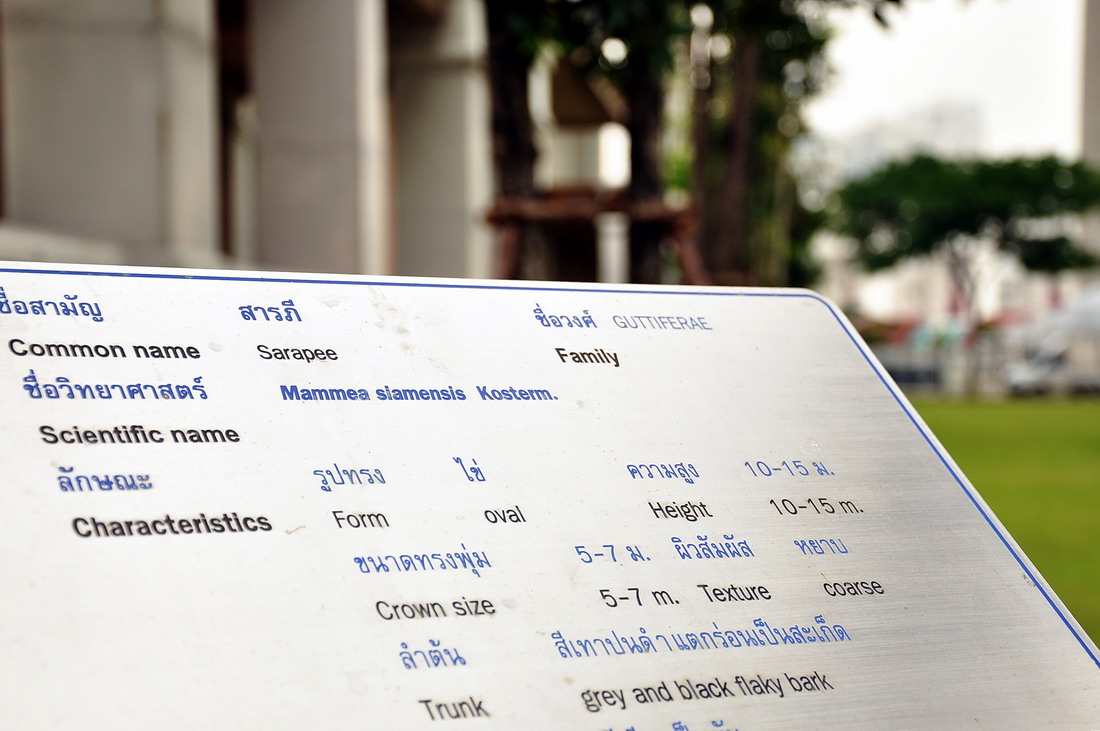 ชื่อสามัญ สารภี ชื่อวงศ์ GUTTIFERAE
Common name Sarapee Family
ชื่อวิทยาศาสตร์ Mammea siamensis Kosterm.
Scientific name
ลักษณะ รูปทรง ไข่ ความสูง 10-15 ม.
Characteristics Form oval Height 10-15 m.
ขนาดทรงพุ่ม 5-7 ม. ผิวสัมผัส หยาบ
Crown size 5-7 m. Texture coarse
ลำต้น สีเทาปนดำ แตกร่อนเป็นสะเก็ด
Trunk grey and black flaky bark